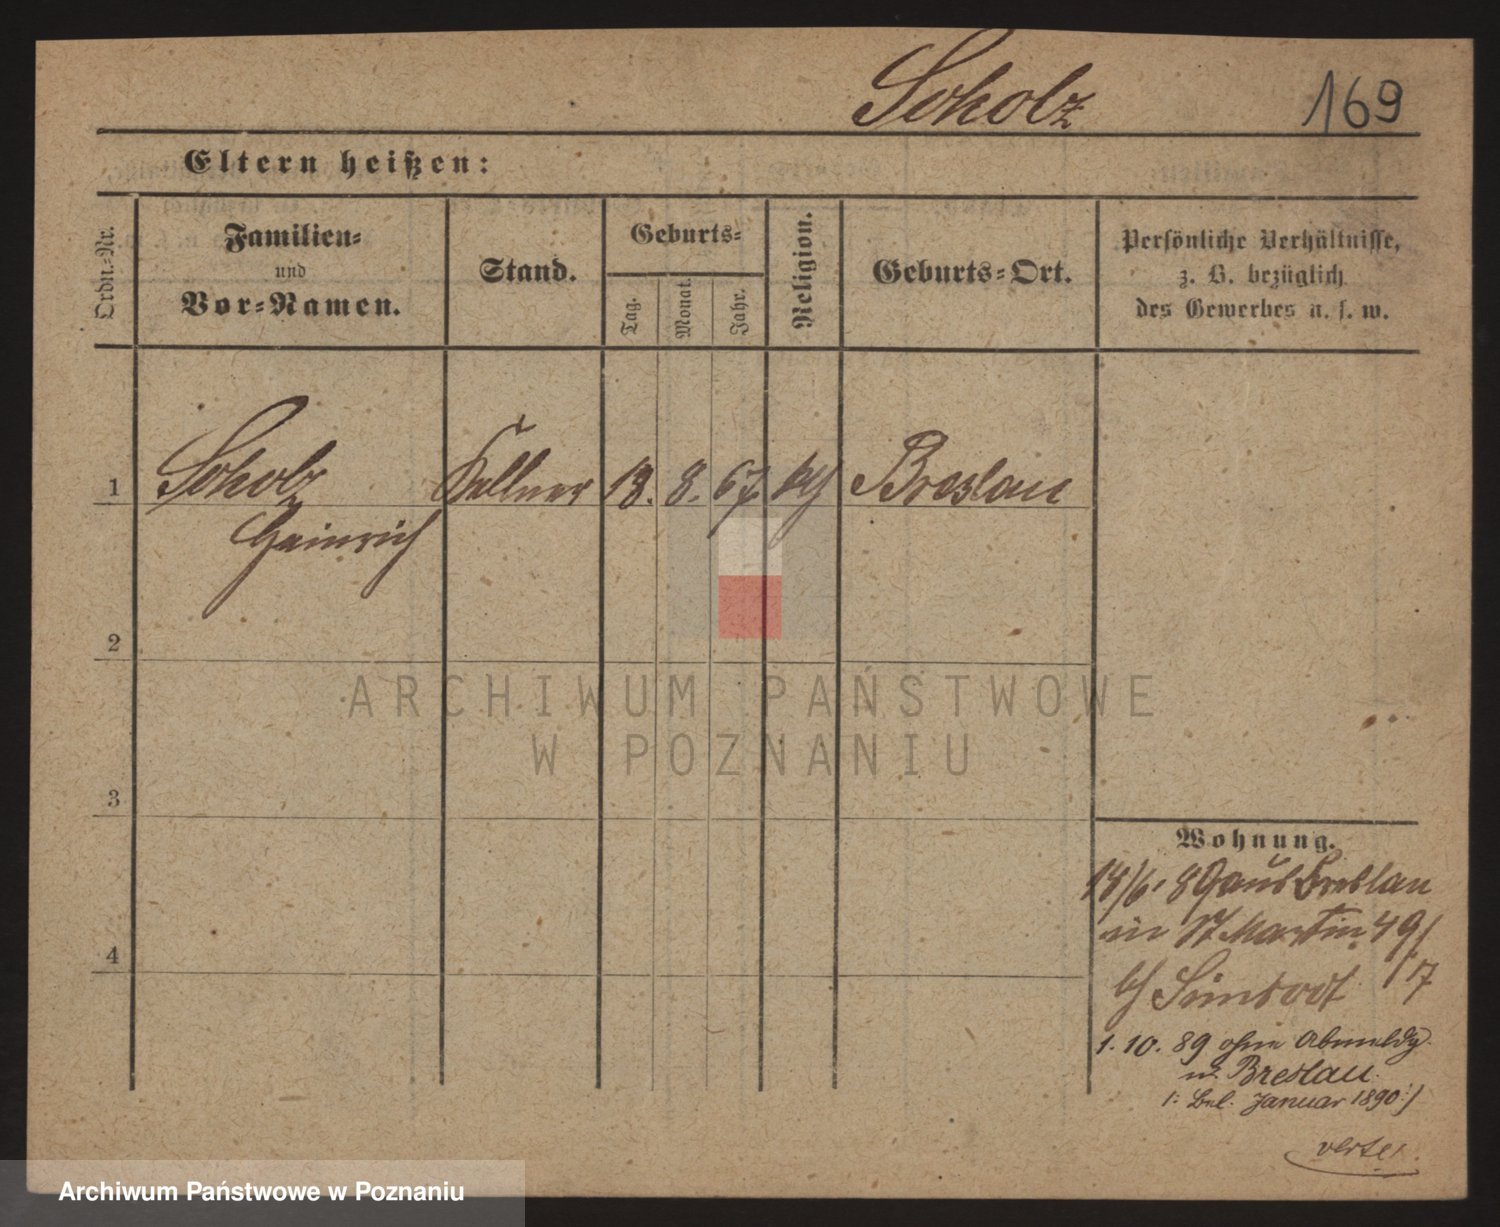 Scholz 169
Eltern heißen:
Ordn.-Nr.
Familien-
und
Vor-Namen.
Stand.
Geburts-
Tag.
Monat.
Jahr.
Religion.
Geburts-Ort.
Persönliche Verhältnisse,
z. B. bezüglich
des Gewerbes u. s. w.
1 Scholz Kellner 18. 8. 67. Breslau
Heinrich
2
ARCHIWUM PAŃSTWOWE
W POZNANIU
3
Wohnung.
18/6. 89 aus Breslau
in St Martin 49/
b/ 17
4
1. 10. 89 ohne Abmeldg.
n. Breslau.
1: Januar 1890:/
verte.
Archiwum Państwowe w Poznaniu